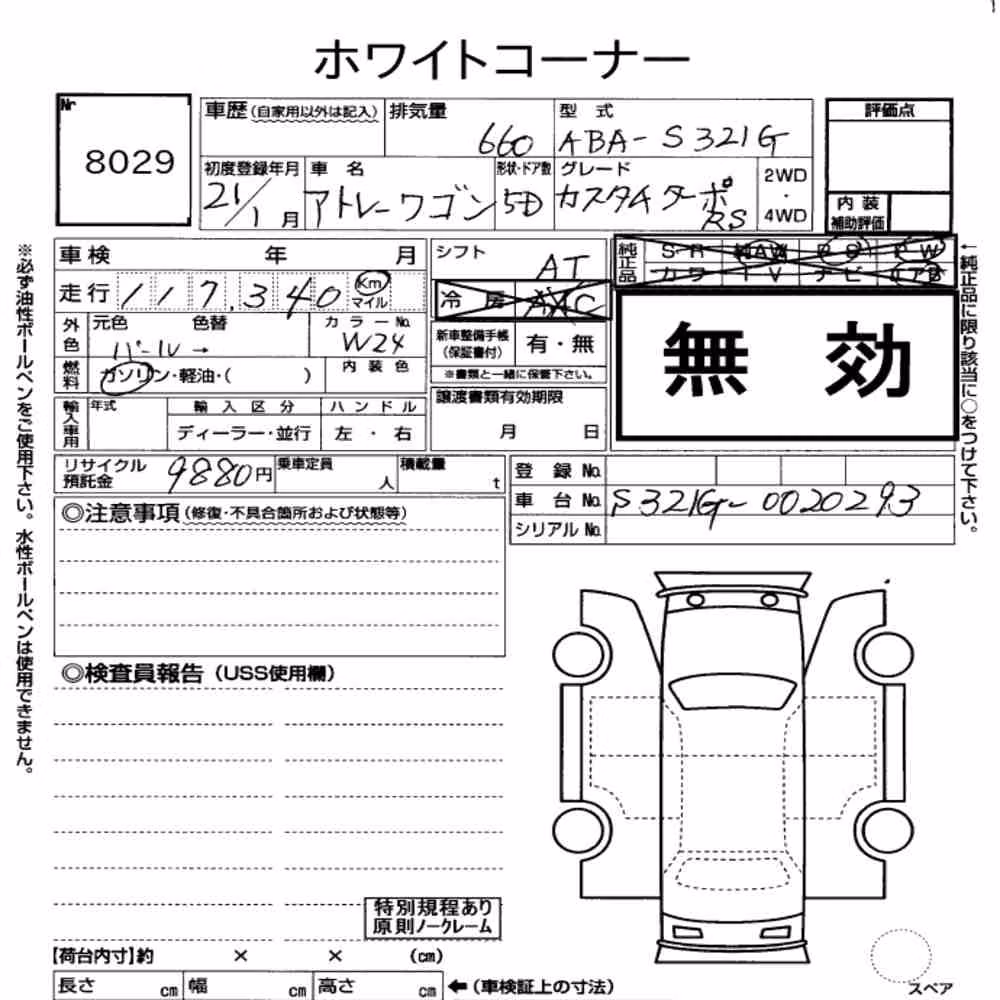 ホワイトコーナー
Nr 8029
車歴(自家用以外は記入) 排気量 660 型式 ABA-S321G
評価点
初度登録年月 21/1月 車名 アトレーワゴン 形状・ドア数 5D グレード カスタムターボRS 2WD・4WD
内装補助評価
車検 年 月
シフト AT
純正品 SR 純AW PS PW
カワ TV ナビ エアB
走行 117,340 Km マイル
冷房 A/C
外色 元色 パール→ 色替 カラーNo. W24
新車整備手帳(保証書付) 有・無
※書類と一緒に保管下さい。
無効
燃料 ガソリン・軽油・( ) 内装色
譲渡書類有効期限 月 日
輸入車用 年式 輸入区分 ディーラー・並行 ハンドル 左・右
リサイクル預託金 9880円 乗車定員 人 積載量 t
登録No.
車台No. S321G-0020293
シリアルNo.
◎注意事項(修復・不具合箇所および状態等)
◎検査員報告(USS使用欄)
特別規程あり
原則ノークレーム
【荷台内寸】約 × × (cm)
長さ cm 幅 cm 高さ cm ←(車検証上の寸法)
スペア
※必ず油性ボールペンをご使用下さい。水性ボールペンは使用できません。
←純正品に限り該当に○をつけて下さい。